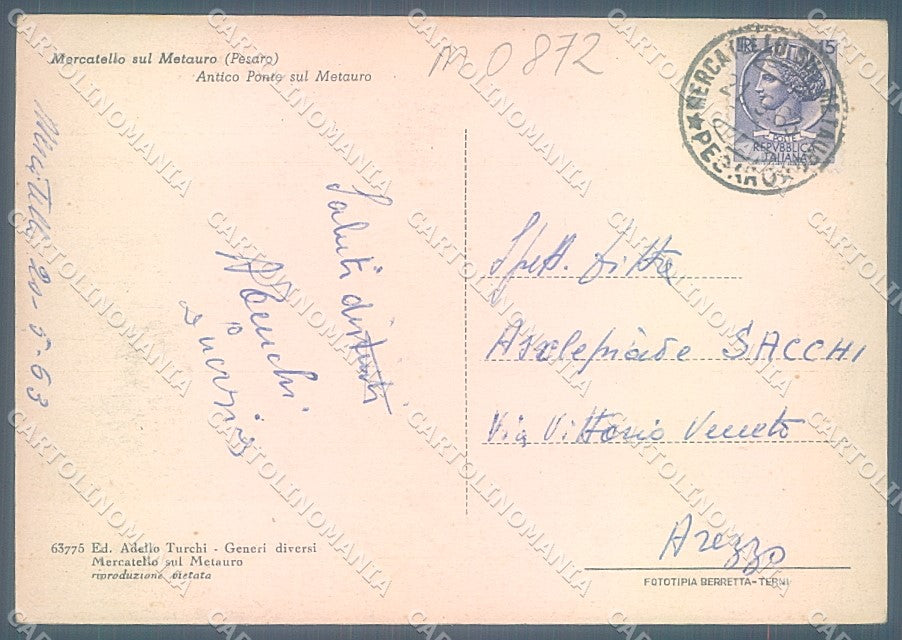 Mercatello sul Metauro (Pesaro)
Antico Ponte sul Metauro
0872
LIRE 15
POSTE
REPVBBLICA
ITALIANA
MERCATELLO SUL METAURO
PESARO
20-5-63
Saluti distinti
Spett. Ditta
Asclepiade SACCHI
Via Vittorio Veneto
Arezzo
63775 Ed. Adello Turchi - Generi diversi
Mercatello sul Metauro
riproduzione vietata
FOTOTIPIA BERRETTA-TERNI
CARTOLINOMANIA